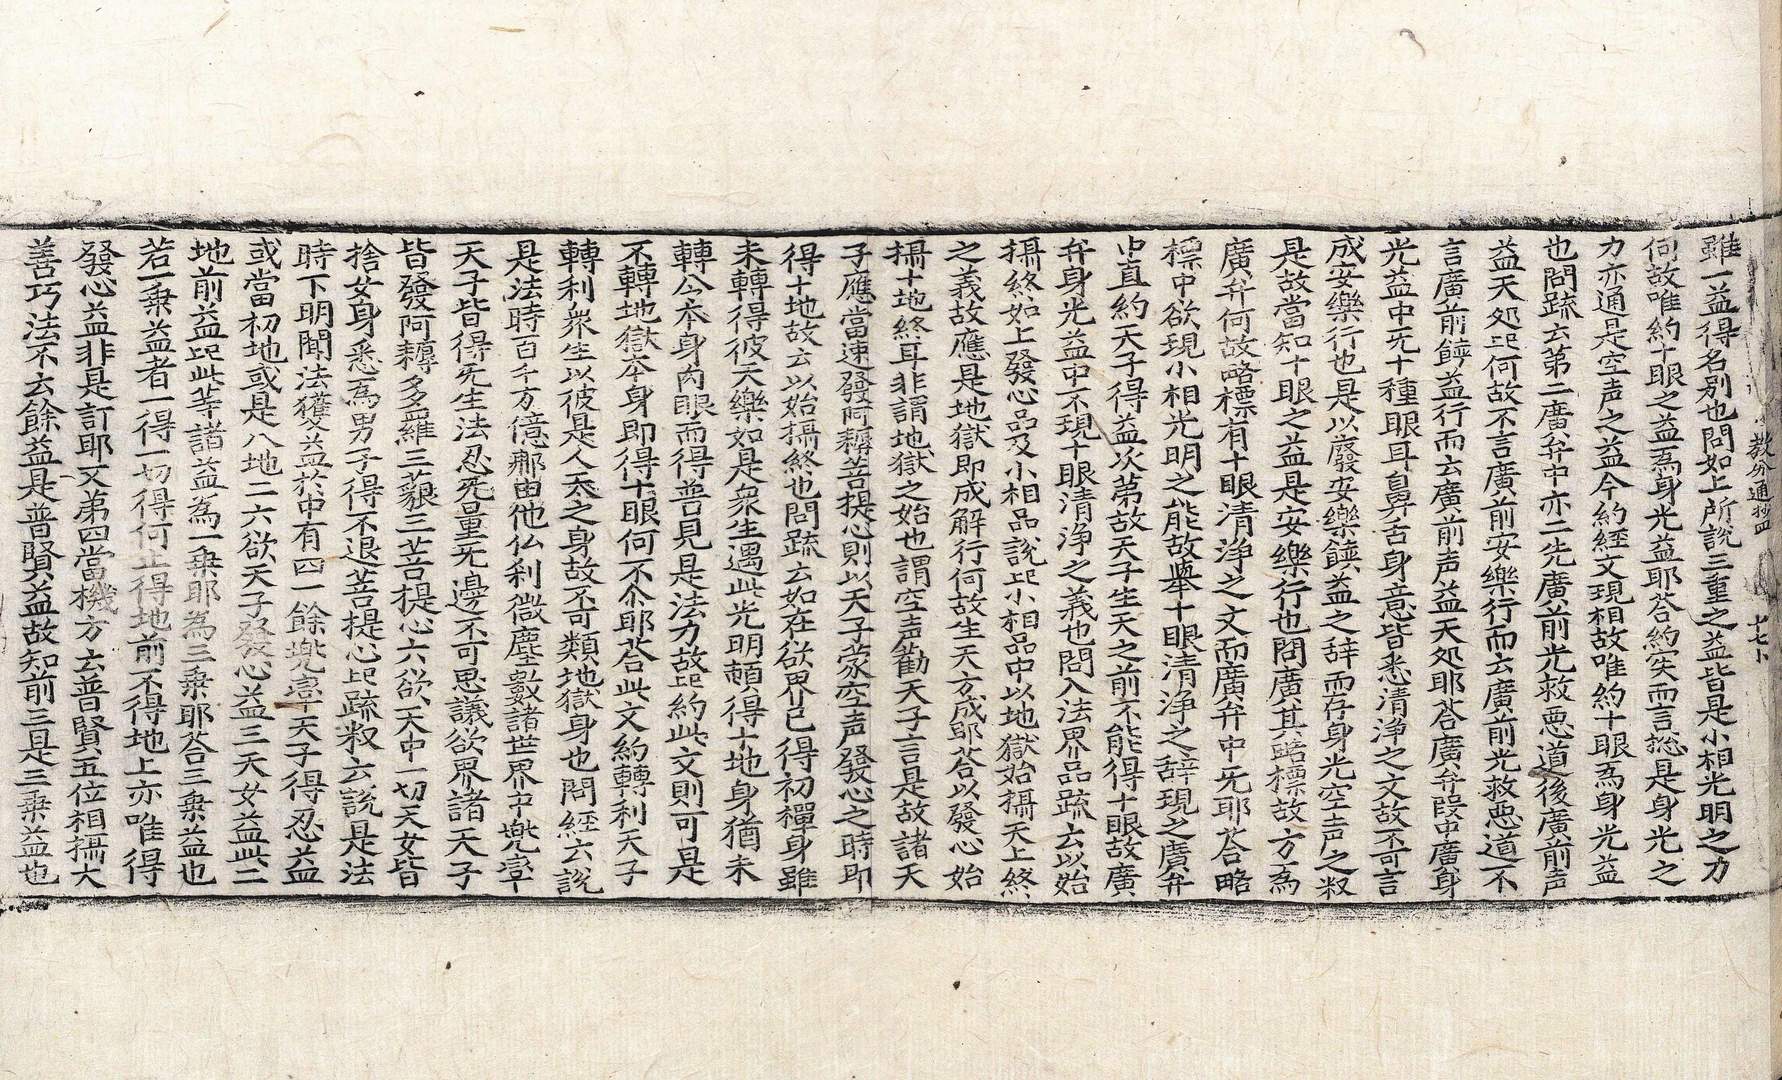 教分通抄四 十七卜
雖一益得名別也問如上所說三重之益皆是小相光明之力
何故唯約十眼之益爲身光益耶荅約宲而言揔是身光之
力亦通是空声之益今約經文現相故唯約十眼爲身光益
也問䟽云第二廣弁中亦二先廣前光救惡道後廣前声
益天処已何故不言廣前安樂行而云廣前光救惡道不
言廣前饒益行而云廣前声益天処耶荅廣弁段中廣身
光益中旡十種眼耳鼻舌身意皆悉清淨之文故不可言
成安樂行也是以廢安樂饒益之辞而存身光空声之叙
是故當知十眼之益是安樂行也問廣其略標故方爲
廣弁何故略標有十眼清淨之文而廣弁中旡耶荅略
標中欲現小相光明之能故擧十眼清淨之辞現之廣弁
中直約天子得益次苐故天子生天之前不能得十眼故廣
弁身光益中不現十眼清淨之義也問入法界品䟽云以始
攝終如上發心品及小相品說已小相品中以地獄始攝天上終
之義故應是地獄即成解行何故生天方成耶荅以發心始
攝十地終耳非謂地獄之始也謂空声勸天子言是故諸天
子應當速發阿耨菩提心則以天子蒙空声發心之時即
得十地故云以始攝終也問䟽云如在欲界已得初禪身雖
未轉得彼天樂如是衆生遇此光明頓得十地身猶未
轉公本身肉眼而得普見是法力故已約此文則可是
不轉地獄本身即得十眼何不尒耶荅此文約轉利天子
轉利衆生以彼是人天之身故不可類地獄身也問經云說
是法時百千万億那由他仏刹微塵數諸世界中兠壹
天子皆得旡生法忍旡量旡邊不可思議欲界諸天子
皆發阿耨多羅三藐三菩提心六欲天中一切天女皆
捨女身悉爲男子得不退菩提心已䟽叙云說是法
時下明聞法獲益於中有四一餘兠壹天子得忍益
或當初地或是八地二六欲天子發心益三天女益此二
地前益已此等諸益爲一乗耶爲三乗耶荅三乗益也
若一乗益者一得一切得何止得地前不得地上亦唯得
發心益非是訂耶又第四當機方云普賢五位相攝大
善巧法不云餘益是普賢益故知前三是三乗益也